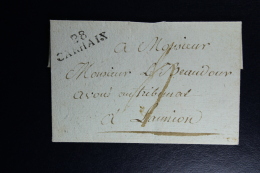 28
CARHAIX
A Monsieur
Monsieur Le Beaudour
avoué au tribunal
à Lannion